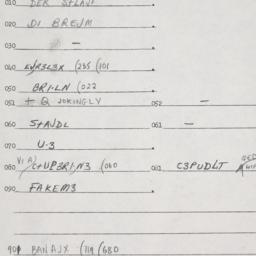 010 DER STAJT
020 DI BREJM
030 —
040 (235 (101
050 BRI:LN (022
051 + Q JOKINGLY 052 —
060 STAJDL 061 —
070 U·3
080 (060 081 C3PUDLT
090 FAKEM3
901 BANAJX (119 (680